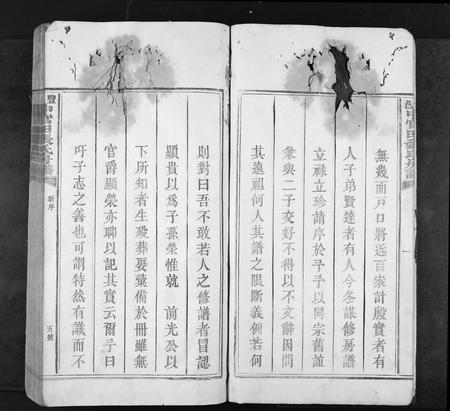 無幾而戸口將近百家計殷實者有
人子弟賢達者有人今冬謀修房譜
立祿立珍請序於予予以同宗舊誼
兼與二子交好不得以不文辭因問
其遠祖何人其譜之限斷義例若何
則對曰吾不敢若人之修譜者冒認
顯貴以爲子孫榮惟就　前光公以
下所知者生歿葬娶彙備於冊雖無
官爵顯榮亦聊以記其實云爾予曰
吁子志之善也可謂特然有識而不
新序
五號